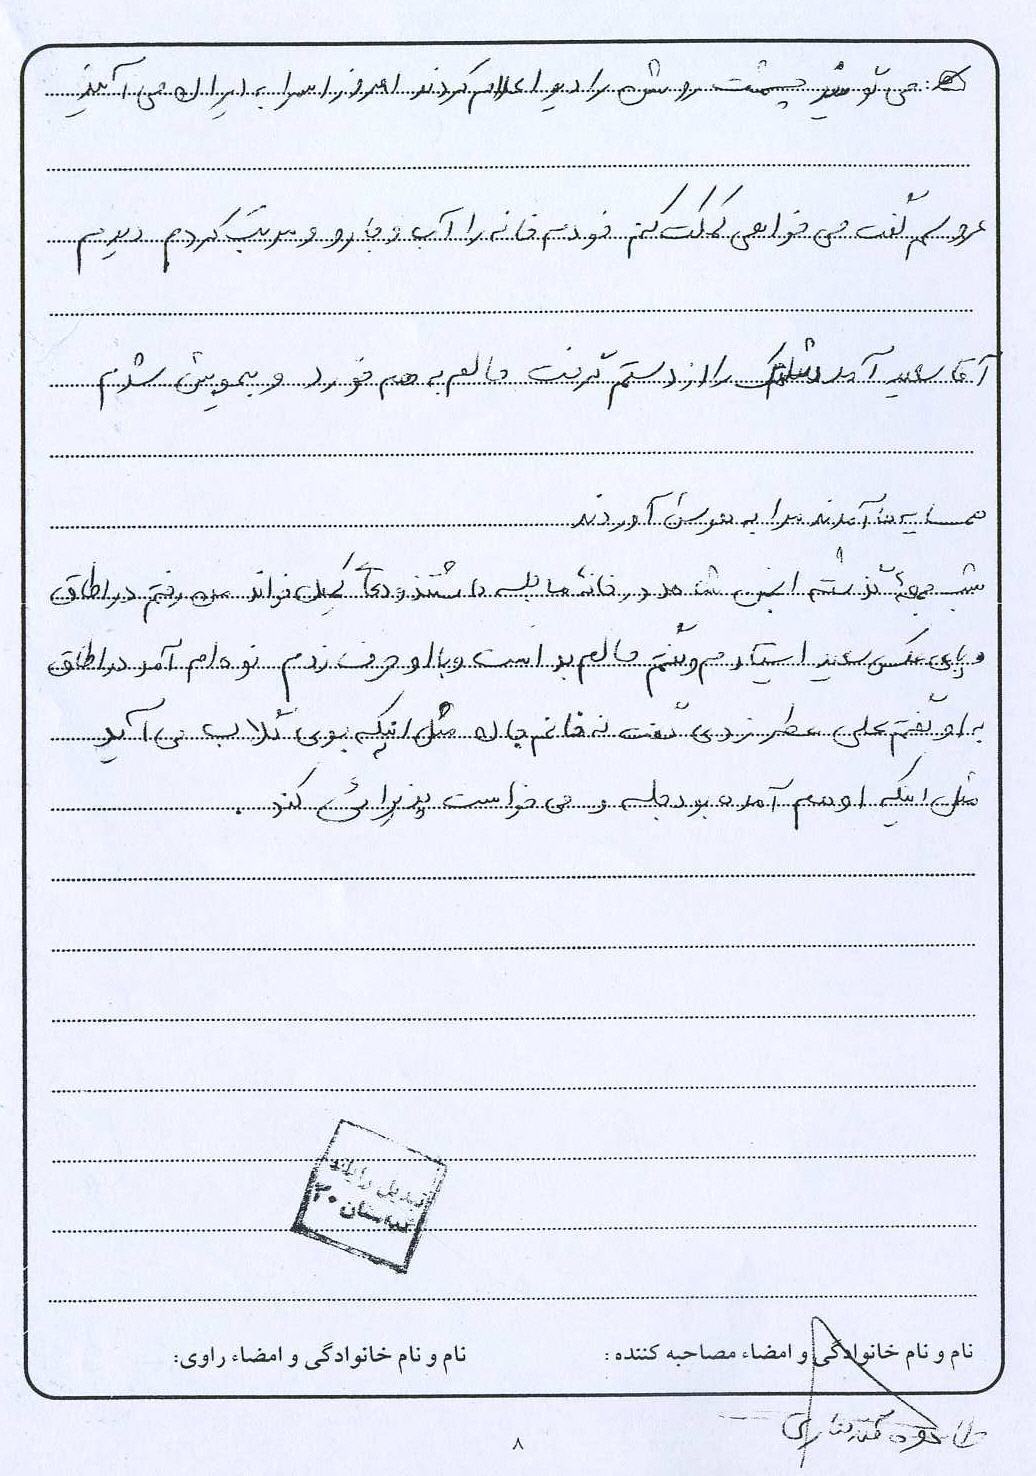 می گو شید چشمت روشن رادیو اعلام کردند امروز اسرا به ایران می آیند
عروسم گفت می خواهی کمکت کنم خودم خانه را آب و جارو و مرتب کردم دیدم
آقا سعید آمد شلنگ را از دستم گرفت حالم به هم خورد و بیهوش شدم
همسایه ها آمدند مرا به هوش آوردند
شب جمعهٔ گذشته انجمن شاهد در خانهٔ ما جلسه داشتند دعای کمیل خواند من رفتم در اطاق
و پای عکس سعید ایستادم و گفتم حالم بد است و با او حرف زدم نوه ام آمد در اطاق
به او گفتم علی عطر زدی گفت نه خانم جان مثل اینکه بوی گلاب می آید
مثل اینکه او هم آمده بود جلسه و می خواست پذیرائی کند .
تبدیل رایانه
تابستان ۳۰
نام و نام خانوادگی و امضاء مصاحبه کننده :
نام و نام خانوادگی و امضاء راوی:
۸